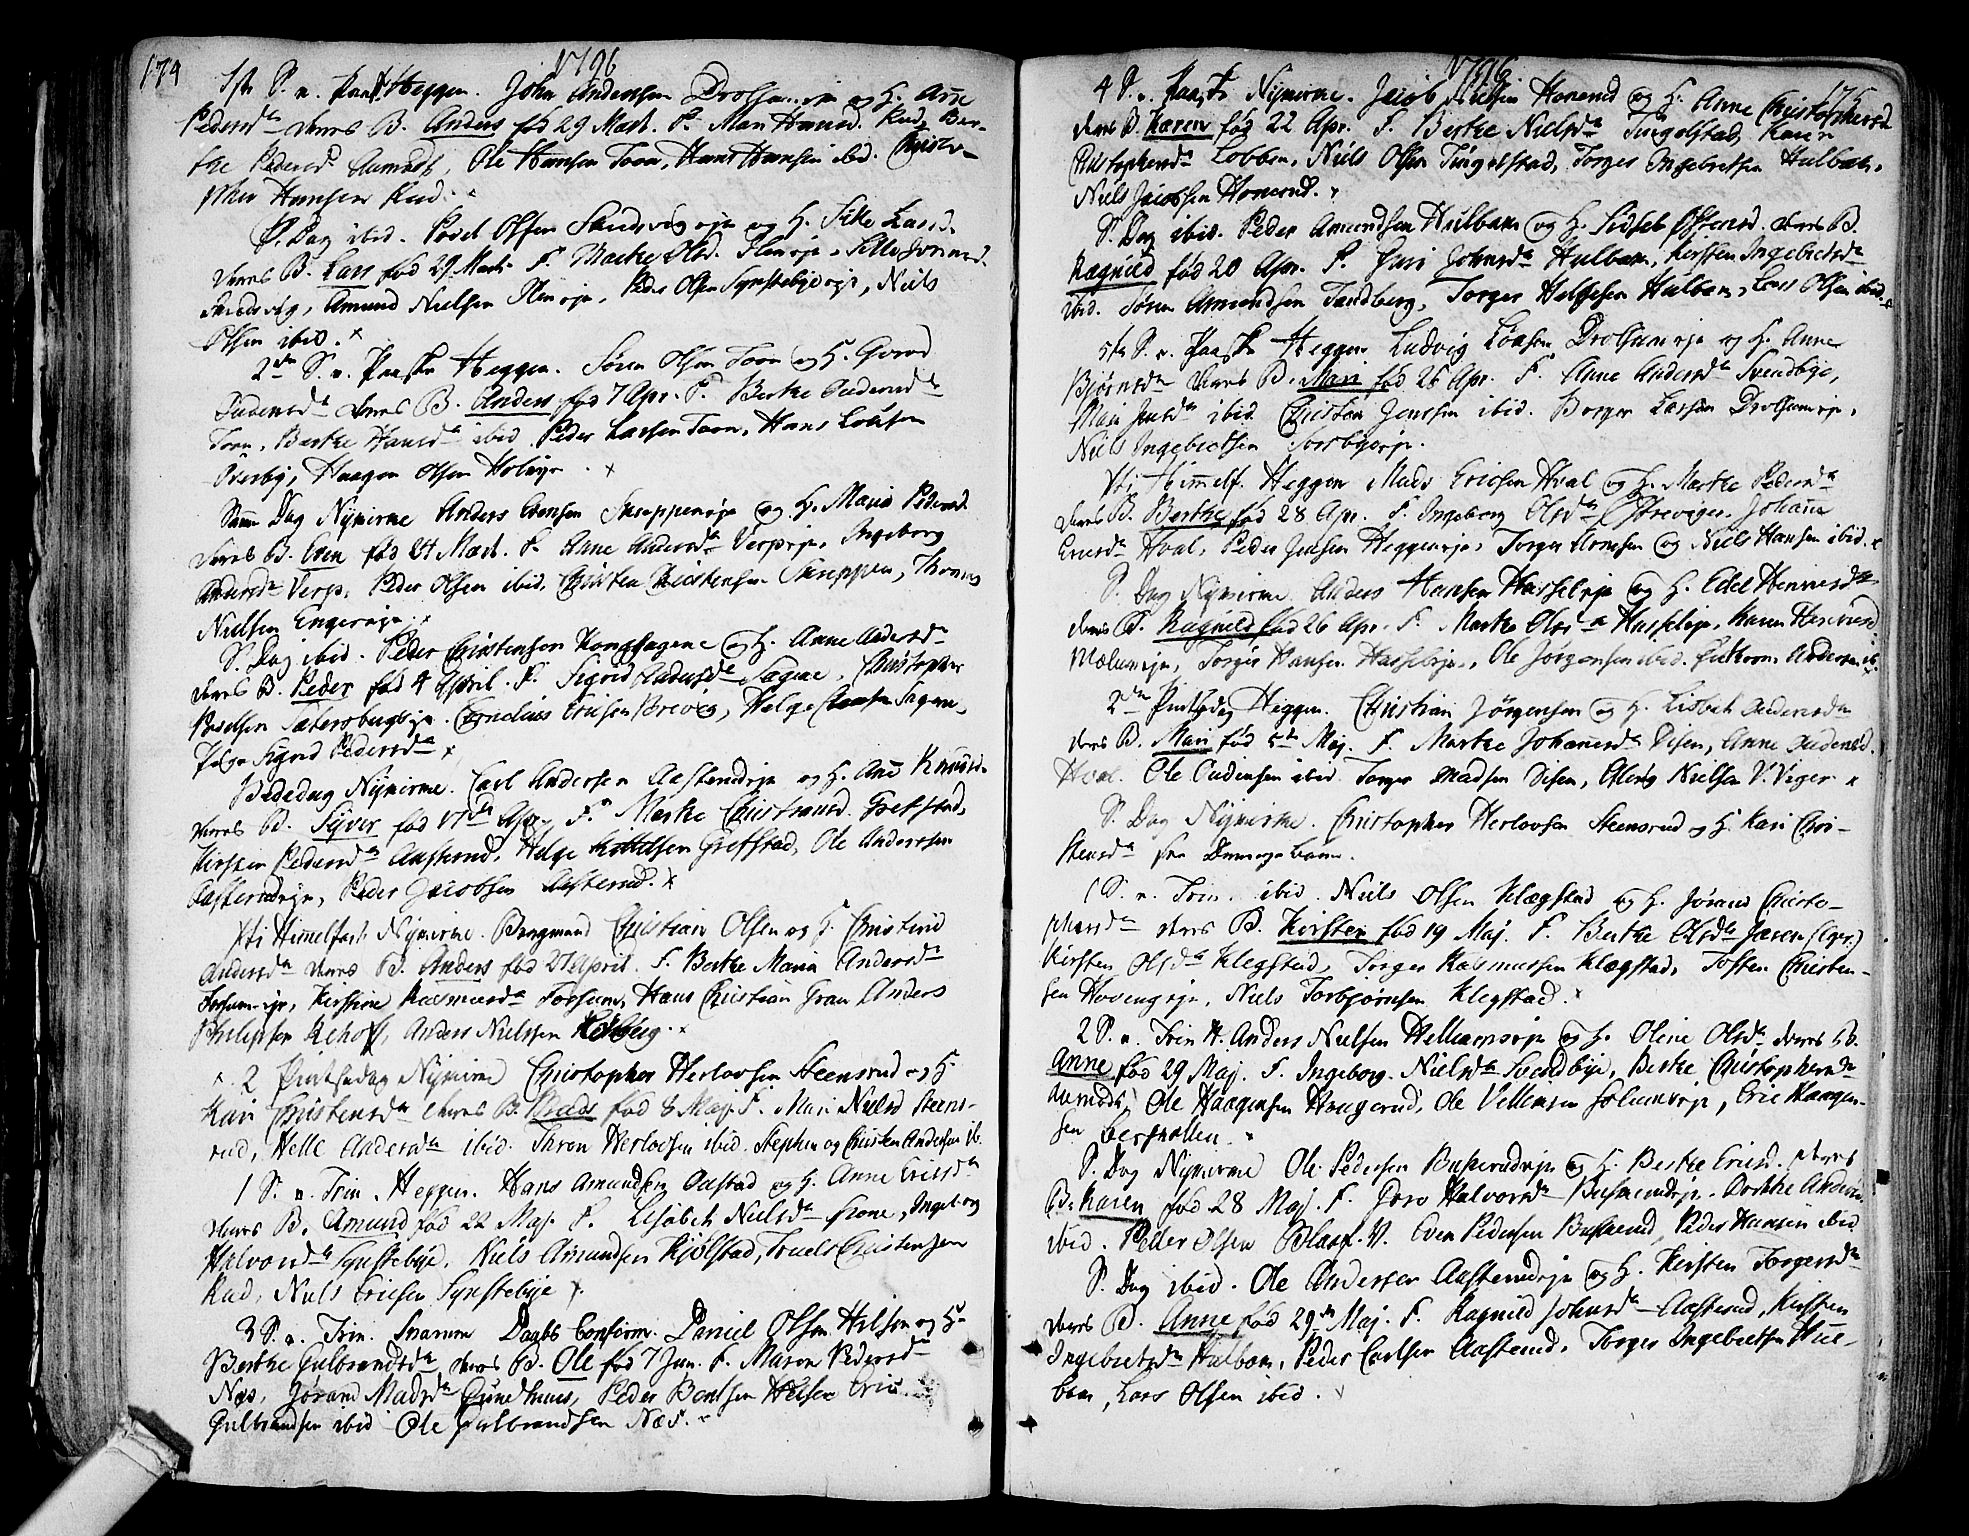 174
1796
1ste S. n. Paask Heggen. John Anderssen Drolsumeje og H. Anne
Pedersd. deres B. Anders fød 29 Mart. F. Mari Hansd. Rud, Ber-
the Pedersd. Aamodt, Ole Hansen Toen, Hans Hansen ibid. Christo-
pher Hansen Rud.
S. Dag ibid. Povel Olsen Sandsvigeje og H. Sike Larsd.
deres B. Lars fød 29 Mart. F. Marthe Olsd.
Amund Nielsen Peder Olsen Synstebyeeje, Niels
Olsen ibid.
2den S. n. Paaske Heggen. Søren Olsen Toen og H. Goroe
deres B. Anders fød 7 Apr. F. Berthe Andersd.
Toen, Berthe Hansd. ibid. Peder Larsen Toen, Hans
Overby, Haagen Olsen Holeije.
Samme Dag Nykirke Anders Evensen Skreppeneje og H. Maria Pedersd.
deres B. Even fød 24 Mart. F. Anne Andersd. Verpeje, Ingeborg
Andersd. Verp. Peder Olsen ibid. Christen Christensen Skreppen, Thomas
Nielsen Engereje.
S. Dag ibid. Peder Christensen Kongshagene og H. Anne Andersd.
deres B. Peder fød 4 April. F. Sigrid Andersd. Sagene, Christopher
Povelsen Cornelius Ericksen Brevig, Helge
Sigrid Pedersd.
Bededag Nykirke. Carl Andersen Aasterudeje og H. Ane Knudsd.
deres B. Syver fød 17de Apr. F. Marthe Christiansd. Grefstad,
Kirsten Pedersd. Aasterud, Helge Kittelsen Grefstad, Ole Andersen
Aasterudeje, Peder Jacobsen Aasterud.
Xti Himmelfart Nykirke. Bergmand Christian Olsen og H. Christine
Andersd. deres B. Anders fød 27 April. F. Berthe Maria Andersd.
Forsumeje, Kirstine Rasmusd. Forsum, Hans Christian Gran Anders
Philipsen Rehoff, Anders Nielssen
2 Pintsedag Nykirke Christopher Herlovsen Steensrud og H.
Kari Christensd. deres B. fød 8 Maj. F. Mari Nielsd. Steens-
rud, Helle Andersd. ibid. Thron Herlovsen ibid. Stephen og Christen Andersen ib.
1 S. n. Trin. Heggen. Hans Amundsen Aastad og H. Anne Ericsd.
deres B. Amund fød 22 Maj. F. Lisabeth Nielsd. Ingeborg
Halvorsd. Synstebye, Niels Amundsen Kjølstad, Truels Christensen
Rud, Niels Ericsen Synstebye.
3 S. n. Trin. Snarum Daabs Confirm. Daniel Olsen Hilsen og H.
Berthe Gulbrandsd. deres B. Ole fød 7 Jun. F. Maren Pedersd.
Næs, Jørand Madsd. Peder Bentsen Hilsen Eric
Gulbrandsen ibid. Ole Gulbrandsen Næs.
1796.
175
4 S. n. Paaske Nykirke. Jacob Nielsen Honerud og H. Anne Christophersd.
deres B. Karen fød 22 Apr. F. Berthe Nielsd. Tingelstad, Karen
Christophersd. Lobben, Niels Olsen Tingelstad, Torger Ingebretsen Hulbak,
Niels Jacobsen Honerud.
S. Dag ibid. Peder Amundsen Hulbak og H. Sidsel Østensd. deres B.
Ragnild fød 20 Apr. F. Guri Johnsd. Hulbak, Kirsten Ingebretsd.
ibid. Søren Amundsen Tandberg, Torger Helgesen Hulbak, Lars Olsen ibid.
5te S. n. Paaske Heggen Ludvig Larsen Drolsumeje og H. Anne
Bjørnsd. deres B. Mari fød 26 Apr. F. Anne Andersd. Svendbye,
Mari Jensd. ibid. Christen Jenssen ibid. Borger Larsen Drolsumeje,
Niels Ingebretsen
Xti Himmelf. Heggen Mads Ericsen Hval og H. Marthe Pedersd.
deres B. Berthe fød 28 Apr. F. Ingeborg Olsd. Johanne
Ericsd. Hval, Peder Jensen Heggeneje, Torger Arnesen og Niels Hansen ibid.
S. Dag Nykirke Anders Hansen Hasseleje og H. Edel Henricsd.
deres B. Ragnild fød 26 Apr. F. Marthe Olsd. Hasseleje, Karen Henricsd.
Mælumeje, Torger Hansen Hasseleje, Ole Jørgensen ibid. Guttorm Andersen ib.
2den Pintsedag Heggen. Christian Jørgensen og H. Lisbeth Andersd.
deres B. Mari fød 5te Maj. F. Marthe Johannesd. Disen, Anne Audensd.
Hval. Ole Audensen ibid. Torger Madsen Disen, Nielsen V. Viger
S. Dag Nykirke. Christopher Herlovsen Steensrud og H. Kari Chri-
stensd.
1 S. n. Trin. ibid. Niels Olsen Klægstad og H. Jørand Christo-
phersd. deres B. Kirsten fød 19 Maj. F. Berthe Olsd. Jaren
Kirsten Olsd. Klegstad, Torger Rasmussen Klægstad, Tosten Christen-
sen Hovengeje, Niels Torbjørnsen Klegstad.
2 S. n. Trin. H. Anders Nielsen Hellumseje og H. Oline Olsd. deres B.
Anne fød 29 Maj. F. Ingeborg Nielsd. Svendbye, Berthe Christophersd.
Ole Haagensen Haagerud, Ole Eric Haagen-
sen
S. Dag Nykirke Ole Pedersen Buskerudeje og H. Berthe Ericsd. deres
B. Karen fød 28 Maj. F. Goro Halvorsd. Buskerudeje, Dorthe Andersd.
ibid. Peder Olsen Blaaf. V. Even Pedersen Buskerud, Peder Hansen ibid.
S. Dag ibid. Ole Andersen Aasterudeje og H. Kirsten Torgersd.
deres B. Anne fød 29de Maj. F. Ragnild Johnsd. Aasterud, Kirsten
Ingebretsd. Hulbak, Peder Carlsen Aasterud, Torger Ingebretsen Hul-
bak, Lars Olsen ibid.